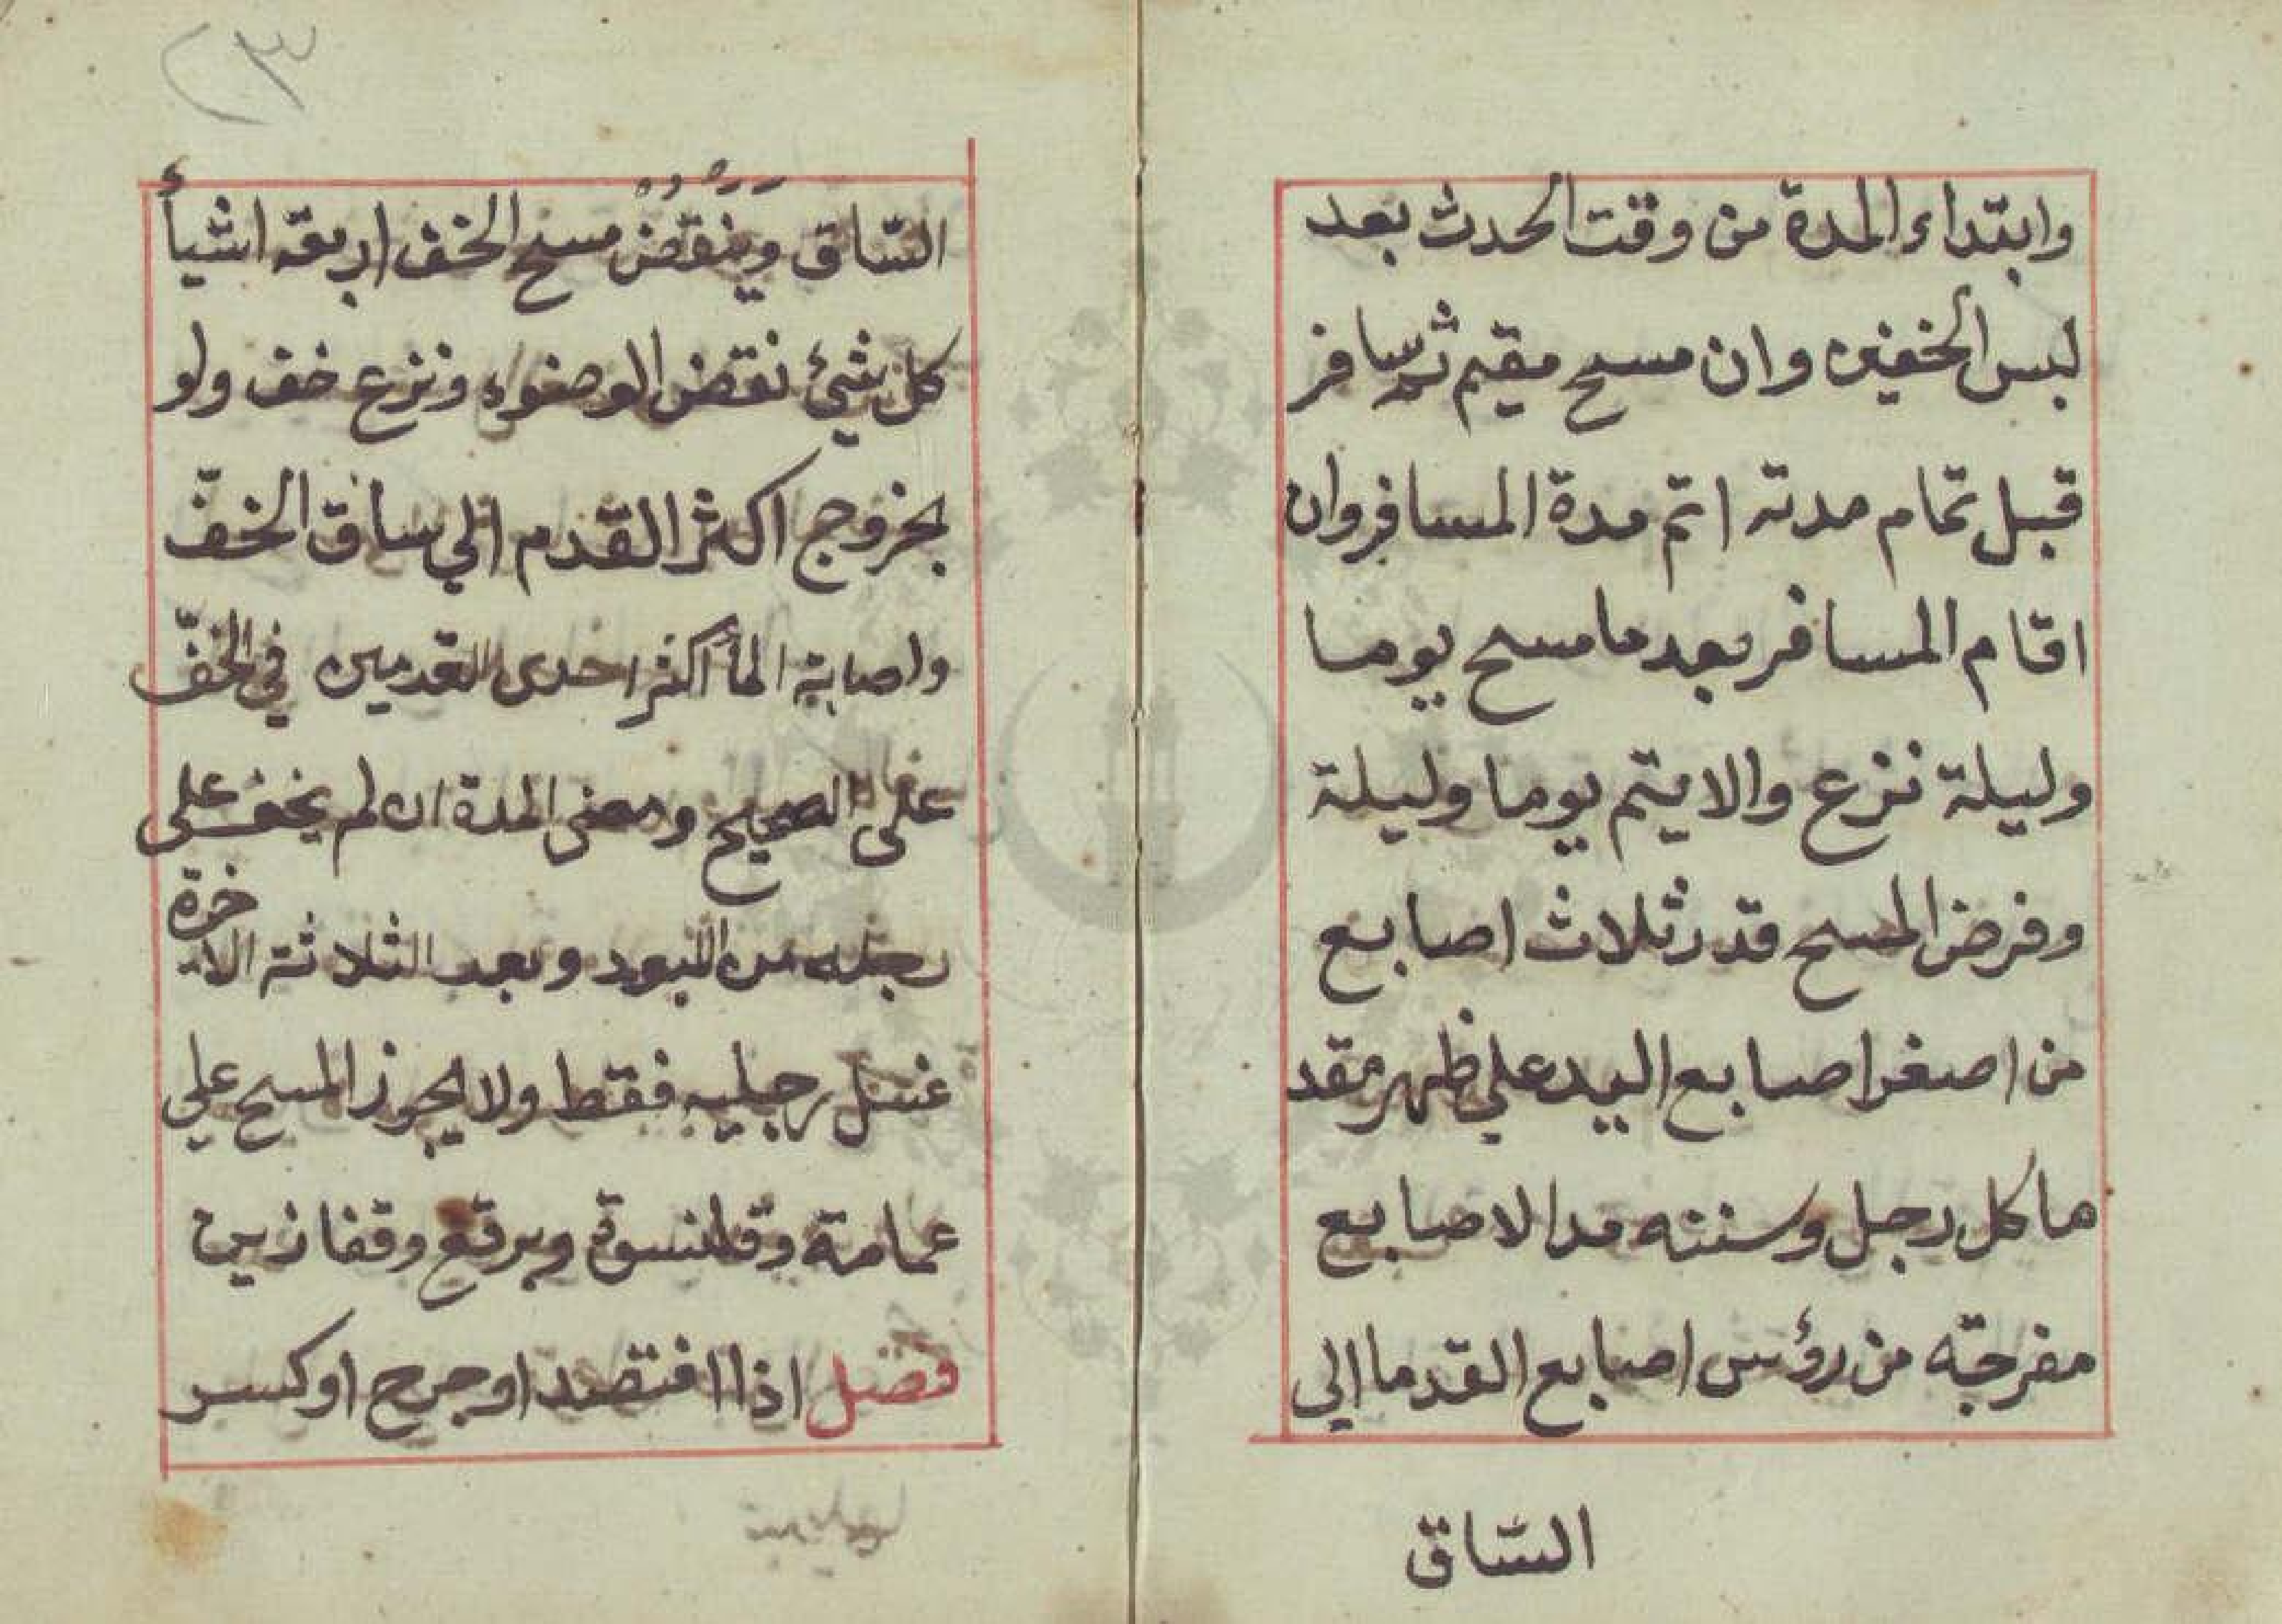 وابتداء المدة من وقت الحدث بعد
لبس الخفين وان مسح مقيم ثم سافر
قبل تمام مدته اتم مدة المسافر وان
اقام المسافر بعد ما مسح يوما
وليلة نزع والا يتم يوما وليلة
وفرض المسح قدر ثلاث اصابع
من اصغر اصابع اليد على ظهر مقد
ها كل رجل وسننه مد الاصابع
مفرجة من رؤس اصابع القدم الى
الساق
٢٣
السّاق وينقض مسح الخف اربعة اشيأ
كل شئ نقض الوضوء ونزع خف ولو
بخروج اكثر القدم الي ساق الخفّ
واصابة المأ اكثر احدى القدمين في الخفّ
على الصحيح ومضى المدة ان لم يخف على
رجله من البرد وبعد الثلاثة الاخرة
غسل رجليه فقط ولا يجوز المسح علي
عمامة وقلنسوة وبرقع وقفازين
فصل اذا افتصد او جرح او كسر